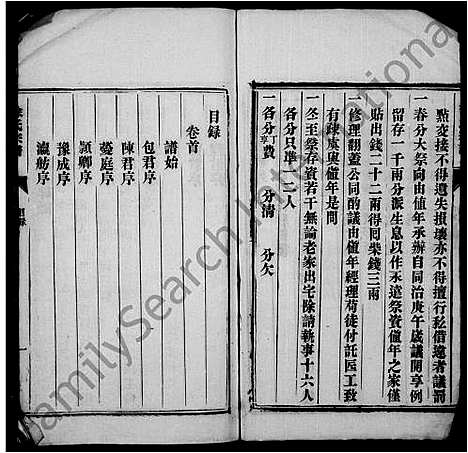 點交接不得遺失損壞亦不得擅行私借違者議罰
一春分大祭向由值年承辦自同治庚午歲議開享例
留存一千兩分派生息以作永遠祭資值年之家僅
貼出錢二十二兩得囘柴錢三兩
一修理翻蓋公同酌議由值年經理苟徒付託匠工致
有疎虞與值年是問
一冬至祭存資若干無論老家出宅除請執事十六人
各分只準一二人
一各分丁費 分清 分欠
目録
卷首
譜始
包君序
陳君序
菱庭序
穎卿序
豫成序
瀛舫序
目録
一
FamilySearch International